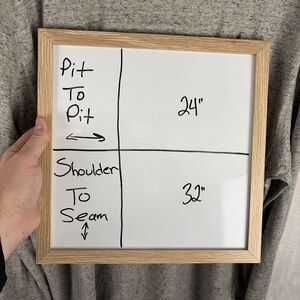 Pit
To
Pit
24"
Shoulder
To
Seam
32"